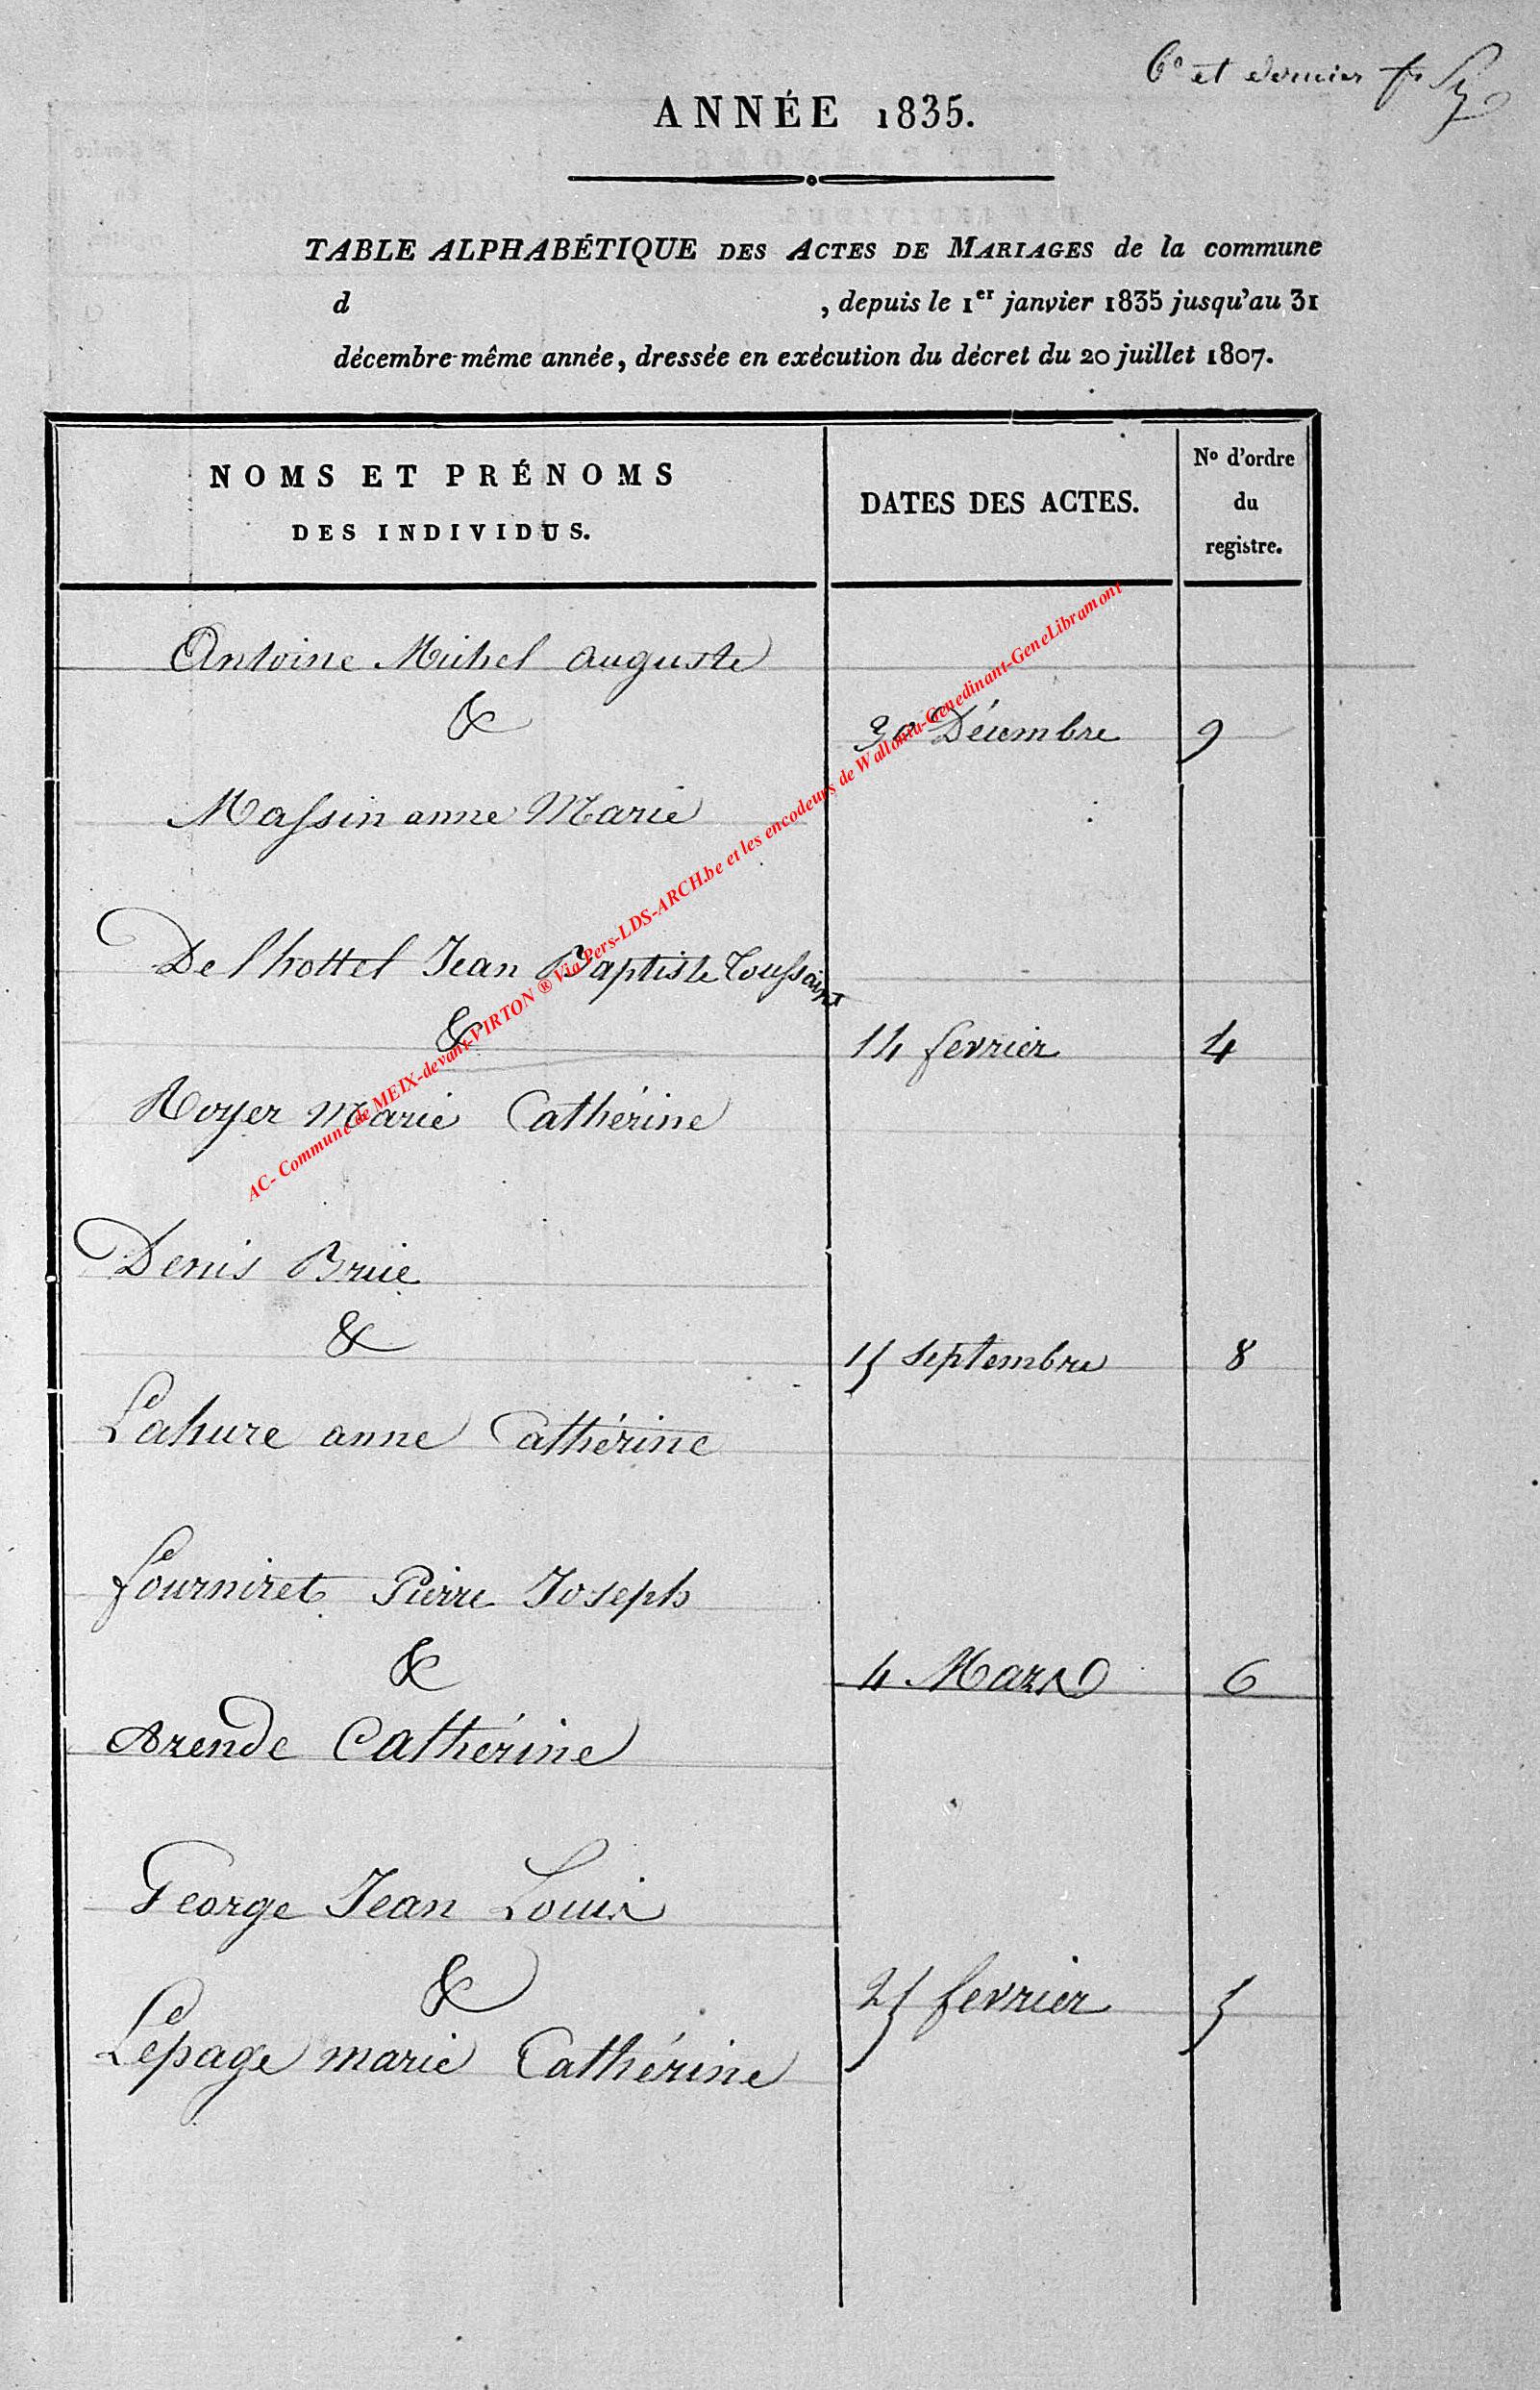 6e et dernier
ANNÉE 1835.
TABLE ALPHABÉTIQUE DES ACTES DE MARIAGES de la commune
d , depuis le 1er janvier 1835 jusqu'au 31
décembre même année, dressée en exécution du décret du 20 juillet 1807.
NOMS ET PRÉNOMS
DES INDIVIDUS.
DATES DES ACTES.
No d'ordre
du
registre.
Antoine Michel auguste
&
30 Décembre 9
Massin anne Marie
Delhottel Jean Baptiste Toussaint
&
14 fevrier 4
Royer Marie Cathérine
Denis Brice
&
15 septembre 8
Lahure anne Cathérine
fourniret Pierre Joseph
&
4 Mars 6
Arende Cathérine
George Jean Louis
&
25 fevrier 5
Lepage marie Cathérine
AC- Commune de MEIX-devant-VIRTON ® Via Pers-LDS-ARCH.be et les encodeurs de Wallonia-Genedinant-GeneLibramont